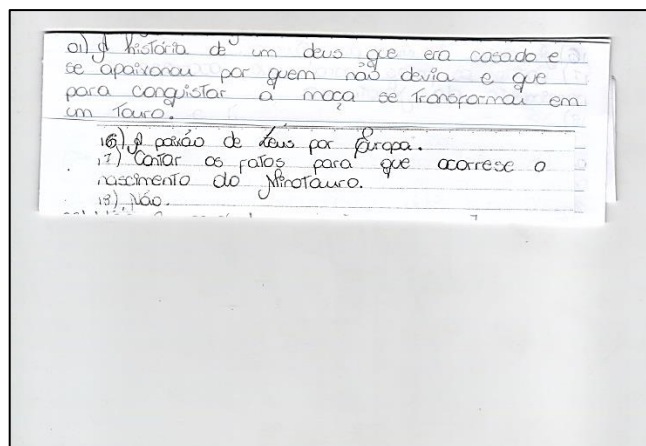 01) A história de um deus que era casado e
se apaixonou por quem não devia e que
para conquistar a moça se transformou em
um Touro.
16) A paixão de Zeus por Europa.
17) Contar os fatos para que ocorrese o
nascimento do Minotauro.
18) Não.